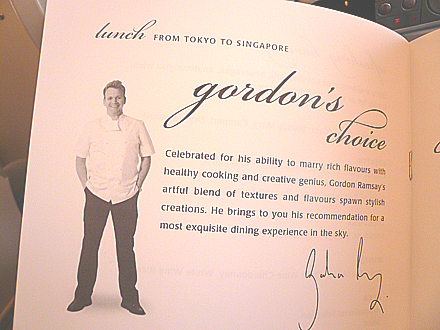 lunch FROM TOKYO TO SINGAPORE
gordon's
choice
Celebrated for his ability to marry rich flavours with
healthy cooking and creative genius, Gordon Ramsay's
artful blend of textures and flavours spawn stylish
creations. He brings to you his recommendation for a
most exquisite dining experience in the sky.